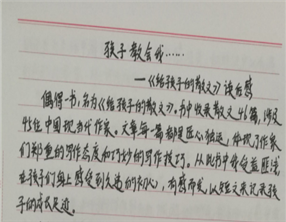 孩子教会我……
—《给孩子的散文》读后感
偶得一书，名为《给孩子的散文》。书中收录散文46篇，涉及
45位中国现当代作家。文章每一篇都是匠心独运，体现了作家
们郑重的写作态度和巧妙的写作技巧。从此书中受益匪浅，
在孩子们身上感受到久违的初心，有感而发，以短文来记录孩
子的成长足迹。